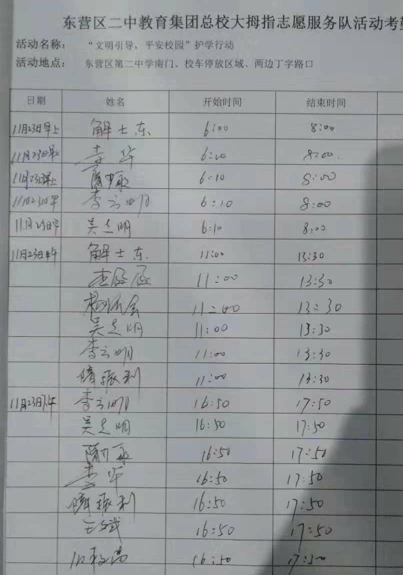 东营区二中教育集团总校大拇指志愿服务队活动考勤
活动名称： “文明引导，平安校园”护学行动
活动地点： 东营区第二中学南门、校车停放区域、两边丁字路口
日期 姓名 开始时间 结束时间
11月23日早上 解士东 6:00 8:00
11月23日早 李华 6:20 8:00
11月23日早上 6:10 8:00
11月23日早 李云明 6:10 8:00
11月23日早 吴志明 6:10 8:00
11月23日中午 解士东 11:00 13:30
11:00 13:30
11:00 13:30
吴志明 11:00 13:30
李云明 11:00 13:30
11:00 13:30
11月23日下午 李云明 16:50 17:50
吴志明 16:50 17:50
16:50 17:50
李华 16:50 17:50
16:50 17:50
王斌 16:50 17:50
16:50 17:50